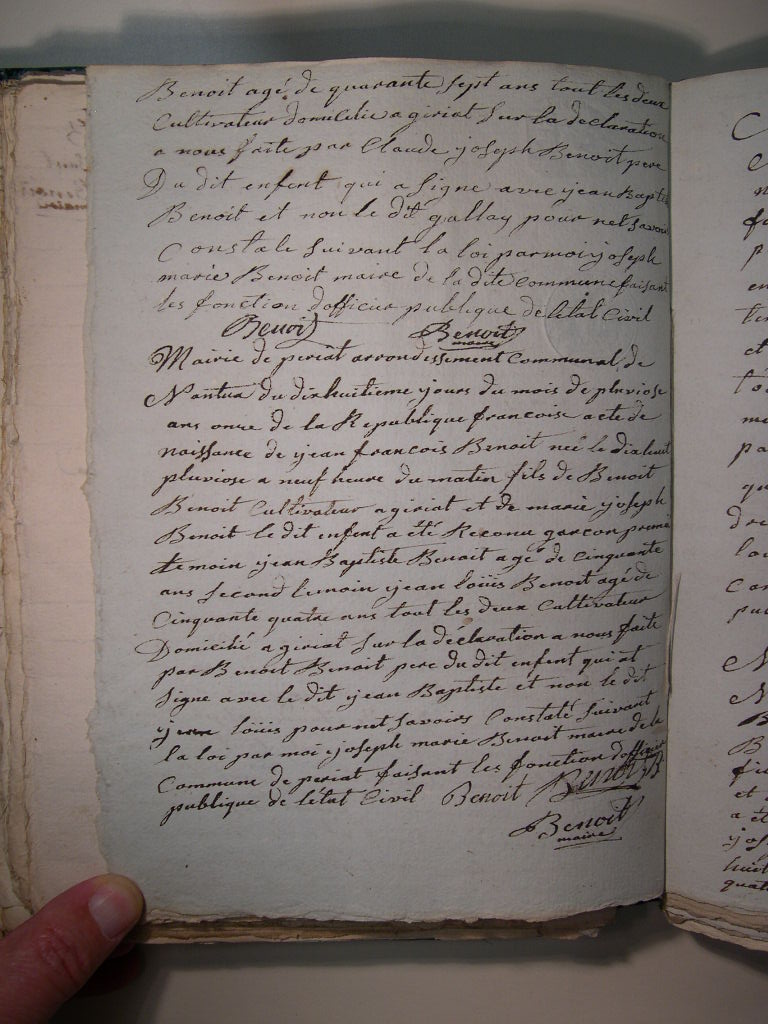 Benoit agé de quarante sept ans tout les deux
Cultivateur domicilie a giriat sur la declaration
a nous faite par Claude joseph Benoit pere
Du dit enfent qui a signe avec jean Bapte
Benoit et non le dit gallay pour net savoir
Constale suivant la loi par moi joseph
marie Benoit maire de la dite Commune faisant
les fonction dofficier publique de letat Civil
Benoit Benoit
maire
Mairie de periat arrondissement Communal de
Nantua du dixhuitieme jours du mois de pluviose
ans onze de la Republique francoise acte de
naissance de jean francois Benoit neé le dixhuit
pluviose a neuf heure du matin fils de Benoit
Benoit Cultivateur a giriat et de marie joseph
Benoit le dit enfent a été Reconu garcon premie
temoin jean Baptiste Benoit agé de Cinquante
ans second temoin jean loüis Benoit agé de
Cinquante quatre ans tout les deux Cultivateur
Domicilié a giriat sur la déclaration a nous faite
par Benoit Benoit pere du dit enfent qui at
signe avec le dit jean Baptiste et non le dit
jean loüis pour net savoirs Constaté suivant
la loi par moi joseph marie Benoit maire de la
Commune de periat faisant les fonction dofficier
publique de letat Civil Benoit Benoit JB
Benoit
maire